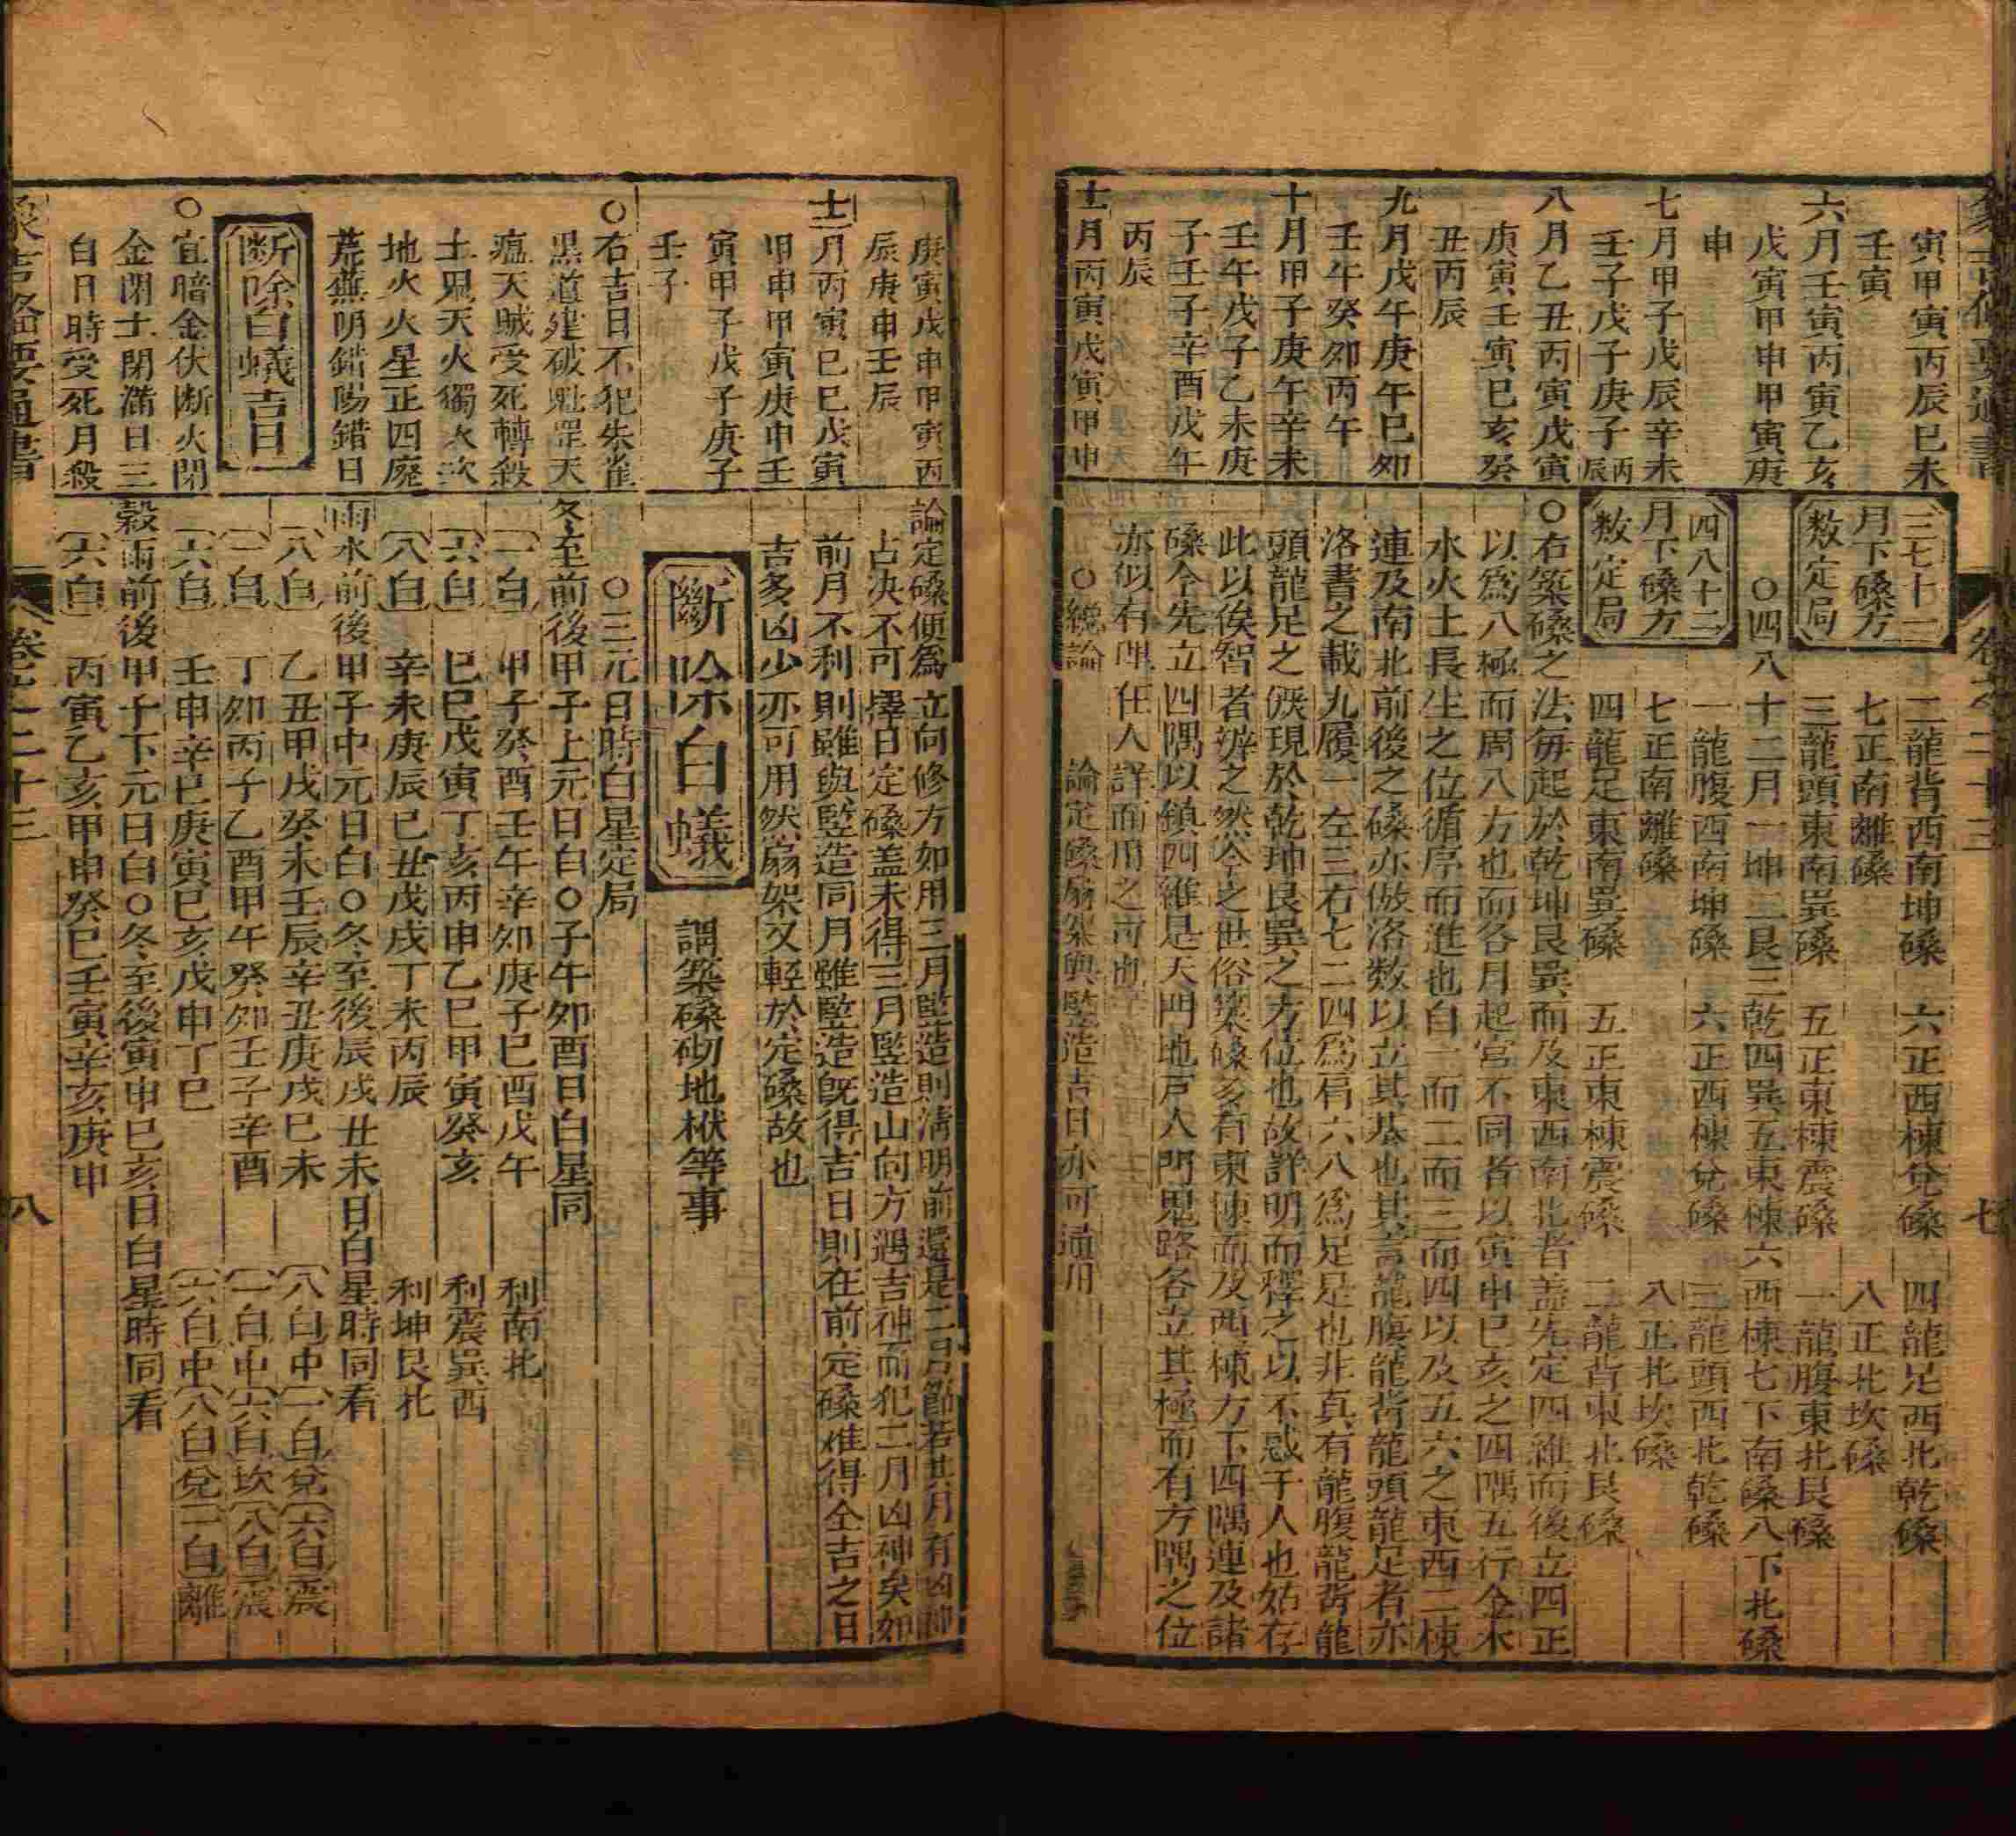 寅甲寅丙辰巳未
壬寅
六月壬寅丙寅乙亥
戊寅甲申甲寅庚
申
七月甲子戊辰辛未
壬子戊子庚子丙辰
八月乙丑丙寅戊寅
庚寅壬寅巳亥癸
丑丙辰
九月戊午庚午巳夘
壬午癸夘丙午
十月甲子庚午辛未
壬午戊子乙未庚
子壬子辛酉戊午
丙辰
十一月丙寅戊寅甲申
三七十一
月下磉方
数定局
二龍背西南坤磉 六正西棟兌磉 四龍足西北乾磉
七正南離磉 八正北坎磉
三龍頭東南巽磉 五正東棟震磉 一龍腹東北艮磉
○四八十二月一坤二艮三乾四巽五東棟六西棟七下南磉八下北磉
四八十二
月下磉方
数定局
一龍腹西南坤磉 六正西棟兌磉 三龍頭西北乾磉
七正南離磉 八正北坎磉
四龍足東南巽磉 五正東棟震磉 二龍背東北艮磉
○右築磉之法每起於乾坤艮巽而及東西南北者盖先定四維而後立四正
以爲八極而周八方也而各月起宮不同者以寅申巳亥之四隅五行金木
水火土長生之位循序而進也自一而二而三而四以及五六之東西二棟
連及南北前後之磉亦倣洛数以立其基也其言龍腹龍背龍頭龍足者亦
洛書之載九履一左三右七二四爲肩六八爲足足也非真有龍腹龍背龍
頭龍足之僕現於乾坤艮巽之方位也故詳明而釋之以不惑于人也姑存
此以俟智者辨之然今之世俗築磉亥有東棟而及西棟方下四隅連及諸
磉今先立四隅以鎮四維是天門地戸人門鬼路各立其極而有方隅之位
亦似有理任人詳而用之可也
○總論 論定磉扇架與竪造吉日亦可通用
卷之二十三
七
庚寅戊申甲寅丙
辰庚申壬辰
十二月丙寅巳巳戊寅
甲申甲寅庚申壬
寅甲子戊子庚子
壬子
○右吉日不犯朱雀
黒道建破魁罡天
瘟天賊受死轉殺
土鬼天火獨火次
地火火星正四廢
荒蕪阴錯陽錯日
断除白蟻吉日
○宜暗金伏断火閉
金閉土閉滿日三
白日時受死月殺
論定磉傾爲立向修方如用三月竪造則清明前還是二月節若其月有凶神
占决不可擇日定磉盖未得三月竪造山向方遇吉神而犯二月凶神矣如
前月不利則雖與竪造同月雖竪造既得吉日則在前定磉難得全吉之日
吉多凶少亦可用然扇架又輕於定磉故也
斷除白蟻
謂築磉砌地栿等事
○三元日時白星定局
冬至前後甲子上元日白○子午夘酉日白星同
一白 甲子癸酉壬午辛夘庚子巳酉戊午 利南北
六白 巳巳戊寅丁亥丙申乙巳甲寅癸亥 利震巽西
八白 辛未庚辰巳丑戊戌丁未丙辰 利坤艮北
雨水前後甲子中元日白○冬至後辰戌丑未日白星時同看
八白 乙丑甲戌癸未壬辰辛丑庚戌巳未 八白中一白兌六白震
一白 丁夘丙子乙酉甲午癸夘壬子辛酉 一白中六白坎八白震
六白 壬申辛巳庚寅巳亥戊申丁巳 六白中八白兌一白離
榖雨前後甲子下元日白○冬至後寅申巳亥日白星時同看
六白 丙寅乙亥甲申癸巳壬寅辛亥庚申
卷之二十三
八